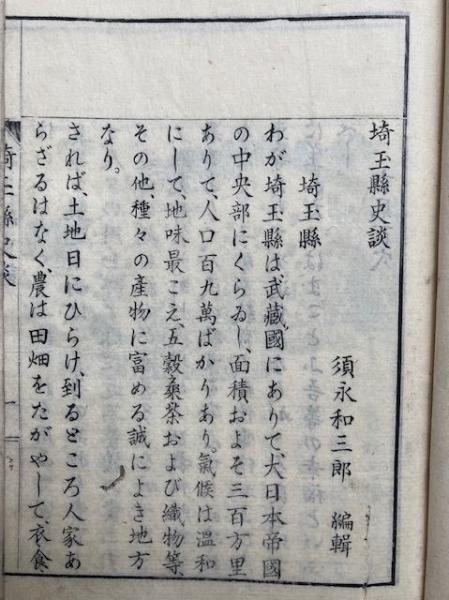 埼玉縣史談
須永和三郎 編輯
埼玉縣
わが埼玉縣は武藏國にありて、大日本帝國
の中央部にくらゐし、面積およそ三百方里
ありて、人口百九萬ばかりあり。氣候は溫和
にして、地味最こえ、五穀桑茶および織物等、
その他、種々の產物に富める誠によき地方
なり。
されば、土地日にひらけ、到るところ人家あ
らざるはなく、農は田畑をたがやして、衣食
埼玉縣史談
一